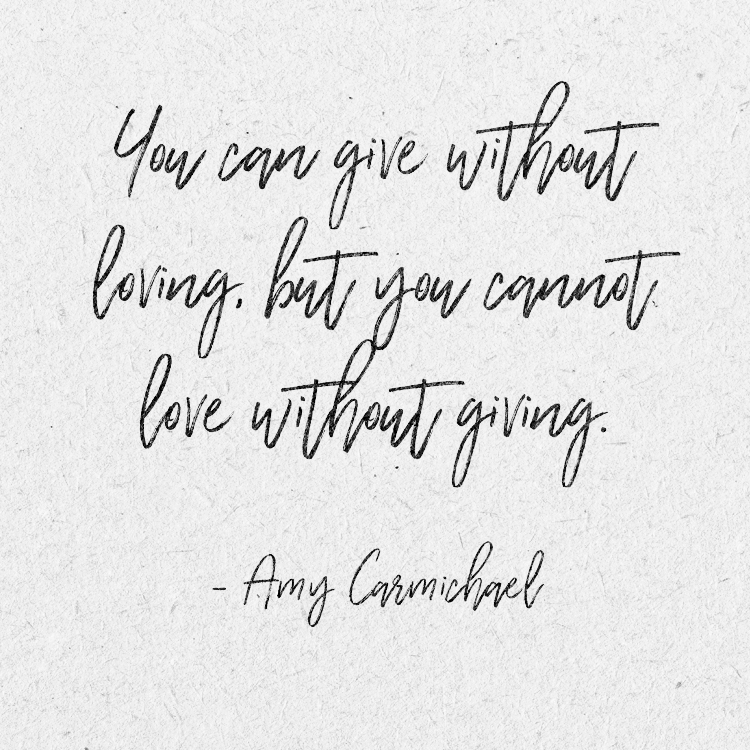 You can give without
loving, but you cannot
love without giving.
- Amy Carmichael